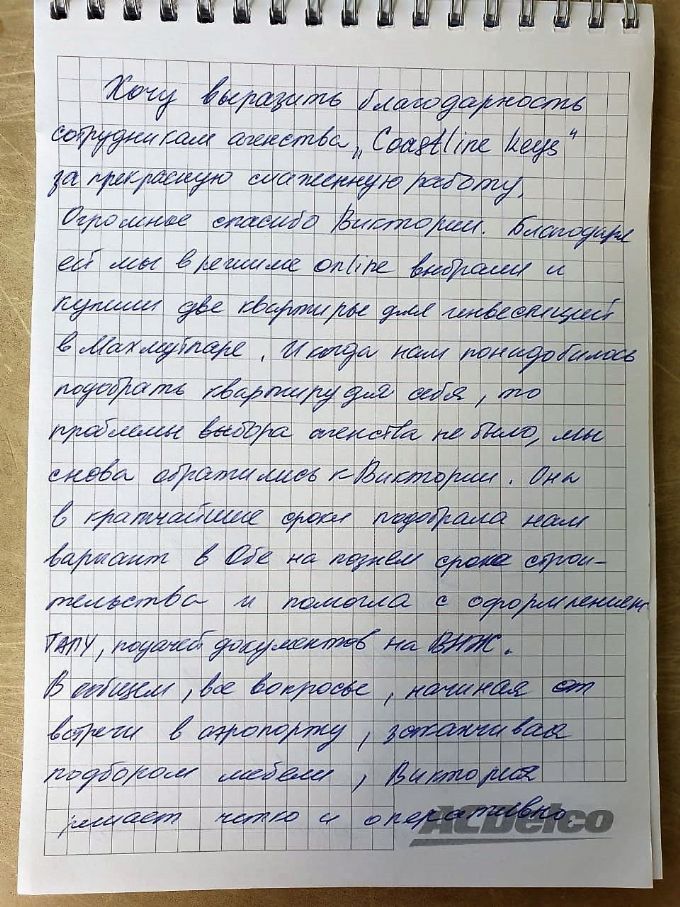 Хочу выразить благодарность
сотрудникам агенства „Coastline keys"
за прекрасную слаженную работу.
Огромное спасибо Виктории. Благодаря
ей мы в режиме online выбрали и
купили две квартиры для инвестиций
в Махмутларе. И когда нам понадобилось
подобрать квартиру для себя, то
проблемы выбора агенства не было, мы
снова обратились к Виктории. Она
в кратчайшие сроки подобрала нам
вариант в Обе на позднем сроке строи-
тельства и помогла с оформлением
ТАПУ, подачей документов на ВНЖ.
В общем, все вопросы, начиная от
встречи в аэропорту, заканчивая
подбором мебели, Виктория
решает четко и оперативно.
ACDelco